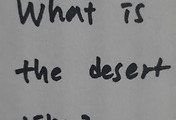 What is
the desert